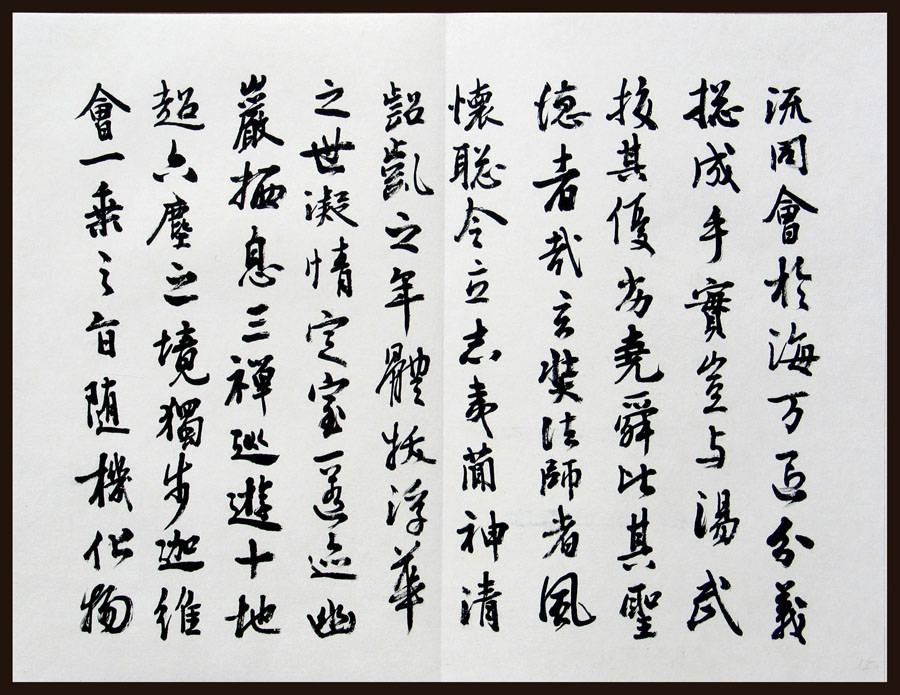 流同會於海万區分義
揔成乎實豈与湯武
校其優劣堯舜比其聖
德者哉玄奘法師者夙
懷聰令立志夷簡神清
齠齔之年體拔浮華
之世凝情定室匿迹幽
巖栖息三禪巡遊十地
超六塵之境獨步迦維
會一乘之旨随機化物